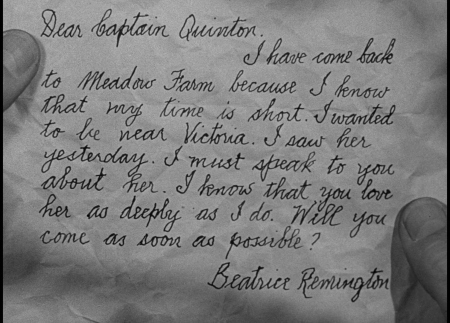 Dear Captain Quinton.
I have come back
to Meadow Farm because I know
that my time is short. I wanted
to be near Victoria. I saw her
yesterday. I must speak to you
about her. I know that you love
her as deeply as I do. Will you
come as soon as possible?
Beatrice Remington